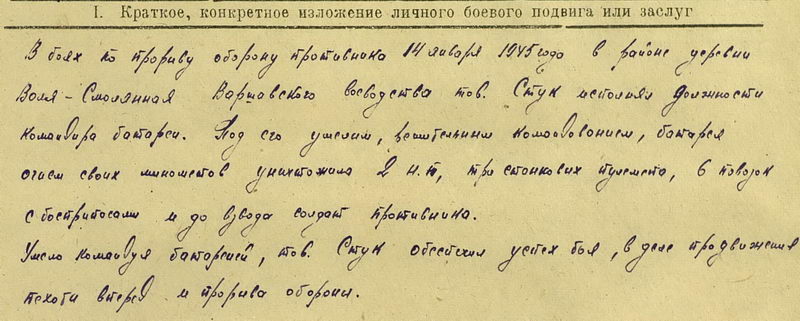 I. Краткое, конкретное изложение личного боевого подвига или заслуг
В боях по прорыву оборону противника 14 января 1945 года в районе деревни
Воля-Смолянная Варшавского воеводства тов. Стук исполнял должности
командира батареи. Под его умелим, решительним командованием, батарея
огнем своих минометов уничтожила 2 Н.П, три станкових пулемета, 6 повозок
с боеприпасами и до взвода солдат противника.
Умело командуя батареей, тов. Стук обеспечил успех боя, в деле продвижения
пехоти вперед и прорива оборони.